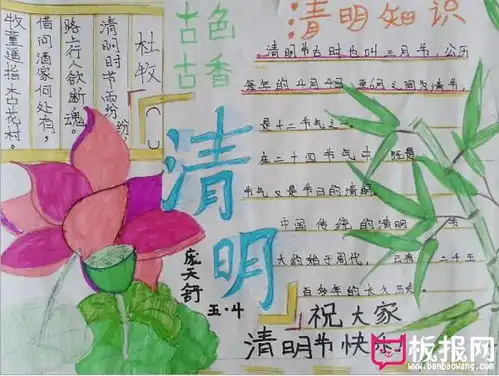 杜牧
清明时节雨纷纷,
路上行人欲断魂。
借问酒家何处有,
牧童遥指杏花村。
古色
古香
清明知识
清明节古时也叫三月节,公历
每年的四月四日至6日之间为清节,
是十二节气之一
在二十四节气中,既是
节气又是节日的清明
中国传统的清明
大约始于周代,已有二千五
百多年的历史
清明
庞天舒
五·4
祝大家
清明节快乐
板报网
www.banbaowang.com